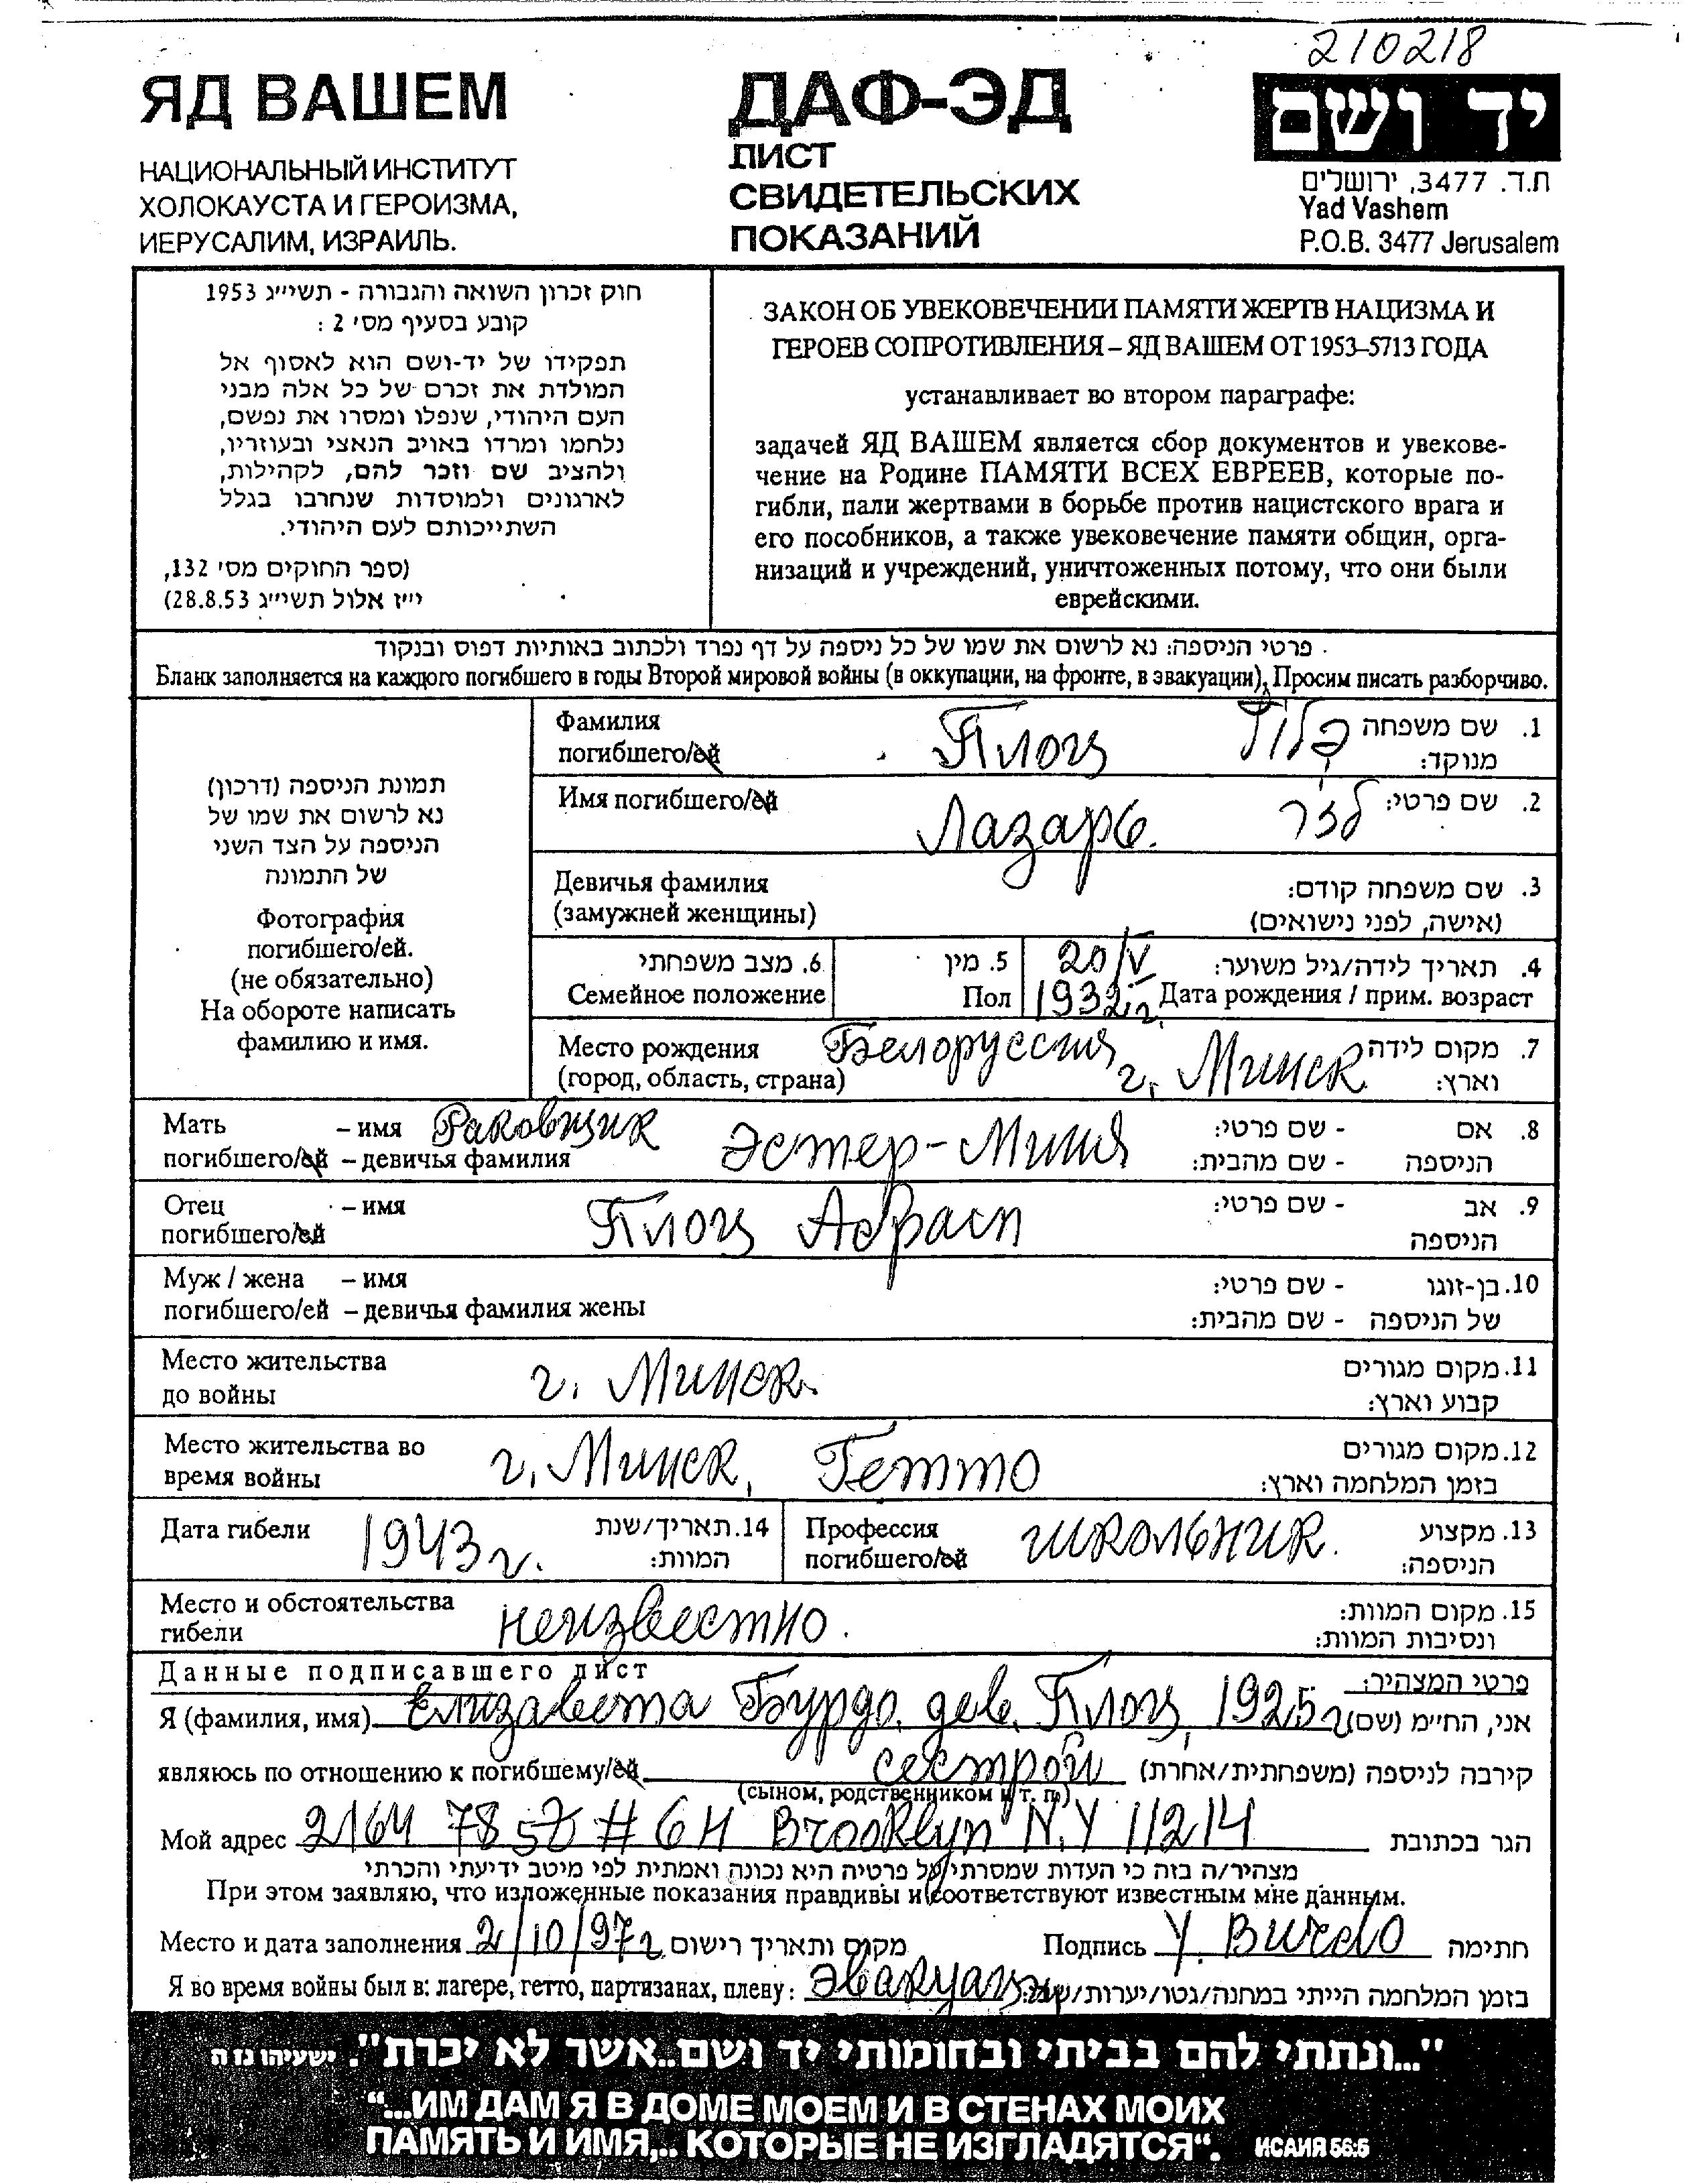 210218
ЯД ВАШЕМ
НАЦИОНАЛЬНЫЙ ИНСТИТУТ
ХОЛОКАУСТА И ГЕРОИЗМА,
ИЕРУСАЛИМ, ИЗРАИЛЬ.
ДАФ-ЭД
ЛИСТ
СВИДЕТЕЛЬСКИХ
ПОКАЗАНИЙ
יד ושם
ת.ד. 3477, ירושלים
Yad Vashem
P.O.B. 3477 Jerusalem
חוק זכרון השואה והגבורה - תשי״ג 1953
קובע בסעיף מס׳ 2 :
תפקידו של יד-ושם הוא לאסוף אל
המולדת את זכרם של כל אלה מבני
העם היהודי, שנפלו ומסרו את נפשם,
נלחמו ומרדו באויב הנאצי ובעוזריו,
ולהציב שם וזכר להם, לקהילות,
לארגונים ולמוסדות שנחרבו בגלל
השתייכותם לעם היהודי.
(ספר החוקים מס׳ 132,
י״ז אלול תשי״ג 28.8.53)
ЗАКОН ОБ УВЕКОВЕЧЕНИИ ПАМЯТИ ЖЕРТВ НАЦИЗМА И
ГЕРОЕВ СОПРОТИВЛЕНИЯ – ЯД ВАШЕМ ОТ 1953–5713 ГОДА
устанавливает во втором параграфе:
задачей ЯД ВАШЕМ является сбор документов и увекове-
чение на Родине ПАМЯТИ ВСЕХ ЕВРЕЕВ, которые по-
гибли, пали жертвами в борьбе против нацистского врага и
его пособников, а также увековечение памяти общин, орга-
низаций и учреждений, уничтоженных потому, что они были
еврейскими.
פרטי הניספה: נא לרשום את שמו של כל ניספה על דף נפרד ולכתוב באותיות דפוס ובנקוד
Бланк заполняется на каждого погибшего в годы Второй мировой войны (в оккупации, на фронте, в эвакуации), Просим писать разборчиво.
תמונת הניספה (דרכון)
נא לרשום את שמו של
הניספה על הצד השני
של התמונה
Фотография
погибшего/ей.
(не обязательно)
На обороте написать
фамилию и имя.
Фамилия Плоц פלוץ 1. שם משפחה
погибшего/ей מנוקד:
Имя погибшего/ей Лазарь. לזר 2. שם פרטי:
Девичья фамилия 3. שם משפחה קודם:
(замужней женщины) (אישה, לפני נישואים)
6. מצב משפחתי 5. מין 20/V 4. תאריך לידה/גיל משוער:
Семейное положение Пол 1932 г. Дата рождения / прим. возраст
Место рождения Белоруссия 7. מקום לידה
(город, область, страна) г. Минск וארץ:
Мать – имя Раковщик Эстер-Миня 8. אם - שם פרטי:
погибшего/ей – девичья фамилия הניספה - שם מהבית:
Отец – имя Плоц Абрасп 9. אב - שם פרטי:
погибшего/ей הניספה
Муж / жена – имя 10. בן-זוגו - שם פרטי:
погибшего/ей – девичья фамилия жены של הניספה - שם מהבית:
Место жительства г. Минск. 11. מקום מגורים
до войны קבוע וארץ:
Место жительства во г. Минск, Гетто 12. מקום מגורים
время войны בזמן המלחמה וארץ:
Дата гибели 1943 г. 14. תאריך/שנת המוות:
Профессия школьник. 13. מקצוע
погибшего/ей הניספה:
Место и обстоятельства неизвестно. 15. מקום המוות:
гибели ונסיבות המוות:
Данные подписавшего лист פרטי המצהיר:
Я (фамилия, имя) Елизавета Бурдо, дев. Плоц, 1925 г אני, החי״מ (שם)
являюсь по отношению к погибшему/ей сестрой קירבה לניספה (משפחתית/אחרת)
(сыном, родственником и т. п.)
Мой адрес 2164 78 St # 6H Brooklyn N.Y 11214 הגר בכתובת
מצהיר/ה בזה כי העדות שמסרתי על פרטיה היא נכונה ואמתית לפי מיטב ידיעתי והכרתי
При этом заявляю, что изложенные показания правдивы и соответствуют известным мне данным.
Место и дата заполнения 2/10/97 г. מקום ותאריך רישום Подпись Y. Burdo חתימה
Я во время войны был в: лагере, гетто, партизанах, плену: Эвакуац בזמן המלחמה הייתי במחנה/גטו/יערות/
"...ונתתי להם בביתי ובחומותי יד ושם..אשר לא יכרת". ישעיהו נו ה
“...ИМ ДАМ Я В ДОМЕ МОЕМ И В СТЕНАХ МОИХ
ПАМЯТЬ И ИМЯ,.. КОТОРЫЕ НЕ ИЗГЛАДЯТСЯ“. ИСАИЯ 56:5